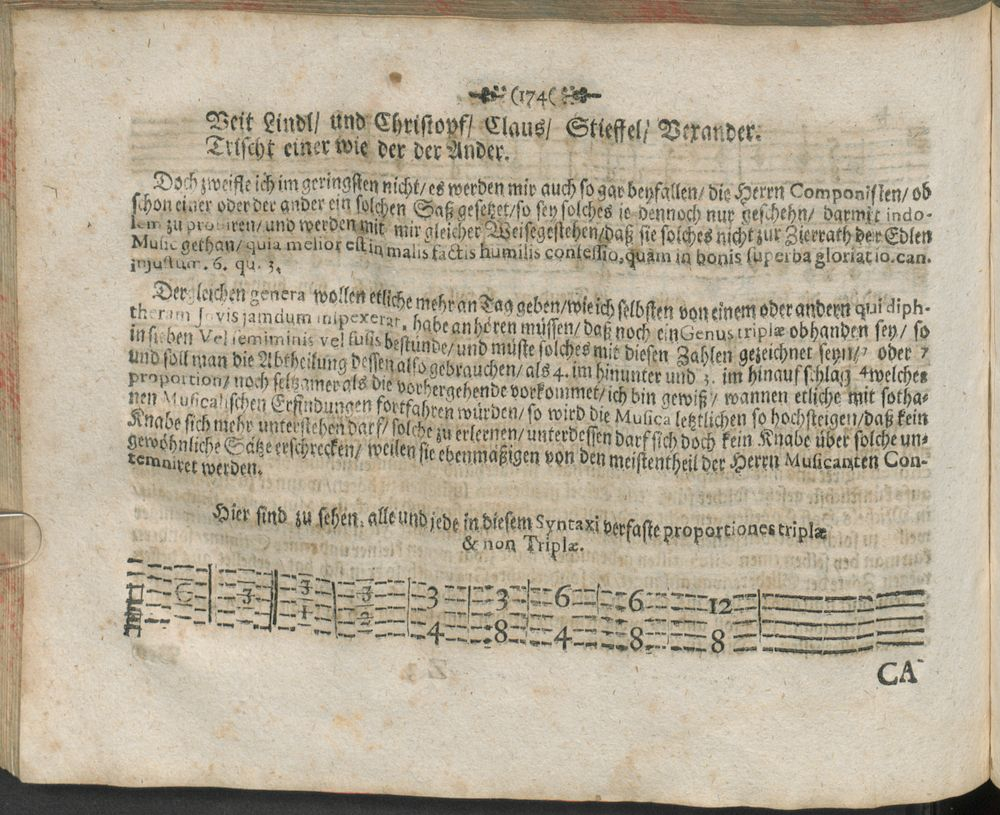 (174(
Veit Lindl/ und Christopf/ Claus/ Stieffel/ Vexander.
Trischt einer wie der der Ander.
Doch zweifle ich im geringsten nicht/ es werden mir auch so gar beyfallen/ die Herrn Componisten/ ob
schon einer oder der ander ein solchen Satz gesetzet/ so sey solches je dennoch nur geschehn/ darmit indo-
lem zu probiren/ und werden mit mir gleicher Weise gestehen/ daß sie solches nicht zur Zierrath der Edlen
Music gethan/ quia melior est in malis factis humilis confessio, quam in bonis superba gloriatio. can.
injustum. 6. qu. 3.
Dergleichen genera wollen etliche mehr an Tag geben/ wie ich selbsten von einem oder andern qui diph-
theram Jovis jamdum inspexerat, habe anhören müssen/ daß noch ein Genus triplæ obhanden sey/ so
in sieben Vel semiminis vel fusis bestünde/ und müste solches mit diesen Zahlen gezeichnet seyn/ 7 oder 7
und soll man die Abtheilung dessen also gebrauchen/ als 4. im hinunter und 3. im hinauf schlag 4 welches
proportion/ noch seltzamer als die vorhergehende vorkommet/ ich bin gewiß/ wannen etliche mit sotha-
nen Musicalischen Erfindungen fortfahren würden/ so wird die Musica letztlichen so hochsteigen/ daß kein
Knabe sich mehr unterstehen darf/ solche zu erlernen/ unterdessen darf sich doch kein Knabe über solche un-
gewöhnliche Sätze erschrecken/ weilen sie ebenmäßigen von den meistentheil der Herrn Musicanten Con-
temniret werden.
Hier sind zu sehen, alle und jede in diesem Syntaxi verfaste proportiones triplæ
& non Triplæ.
C 3 3 3 3 3 6 6 12
1 2 4 8 4 8 8
CA